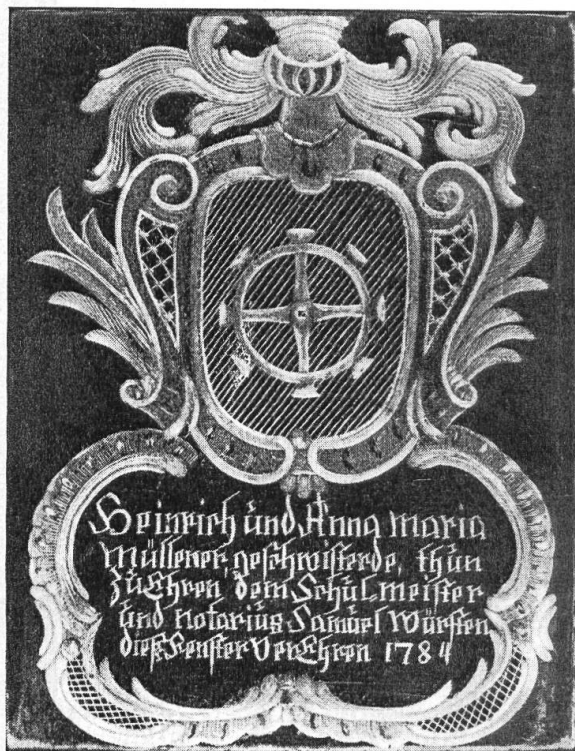 Heinrich und Anna maria
Müllener, geschwisterde, thun
zu Ehren dem Schulmeister
und notarius Samuel Würsten
dieß Fenster VerEhren 1784